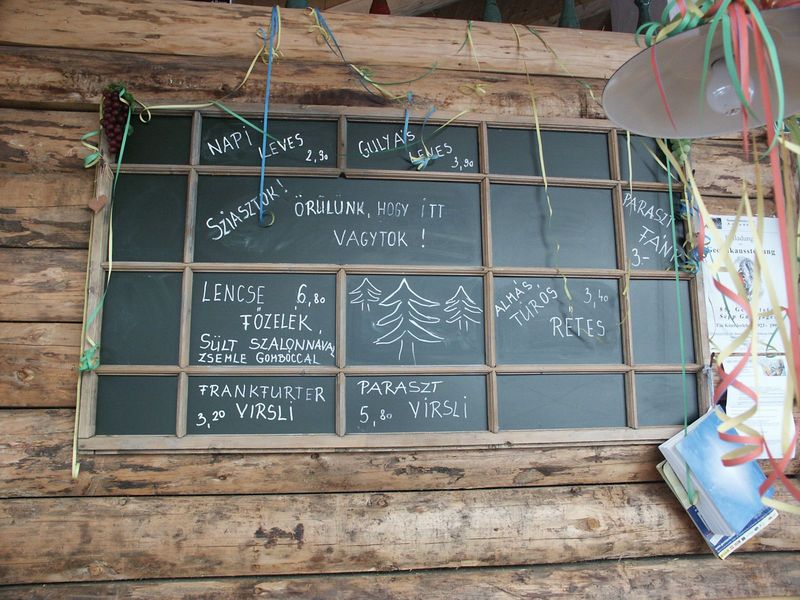 NAPI
LEVES
2,90
GULYÁS
LEVES
3,90
SZIASZTOK!
ÖRÜLÜNK, HOGY ITT
VAGYTOK!
PARASZT
FÁNK
3-
LENCSE 6,80
FŐZELÉK,
SÜLT SZALONNÁVAL
ZSEMLE GOMBÓCCAL
ALMÁS
TÚRÓS
3,40
RÉTES
FRANKFURTER
3,20 VIRSLI
PARASZT
5,80 VIRSLI